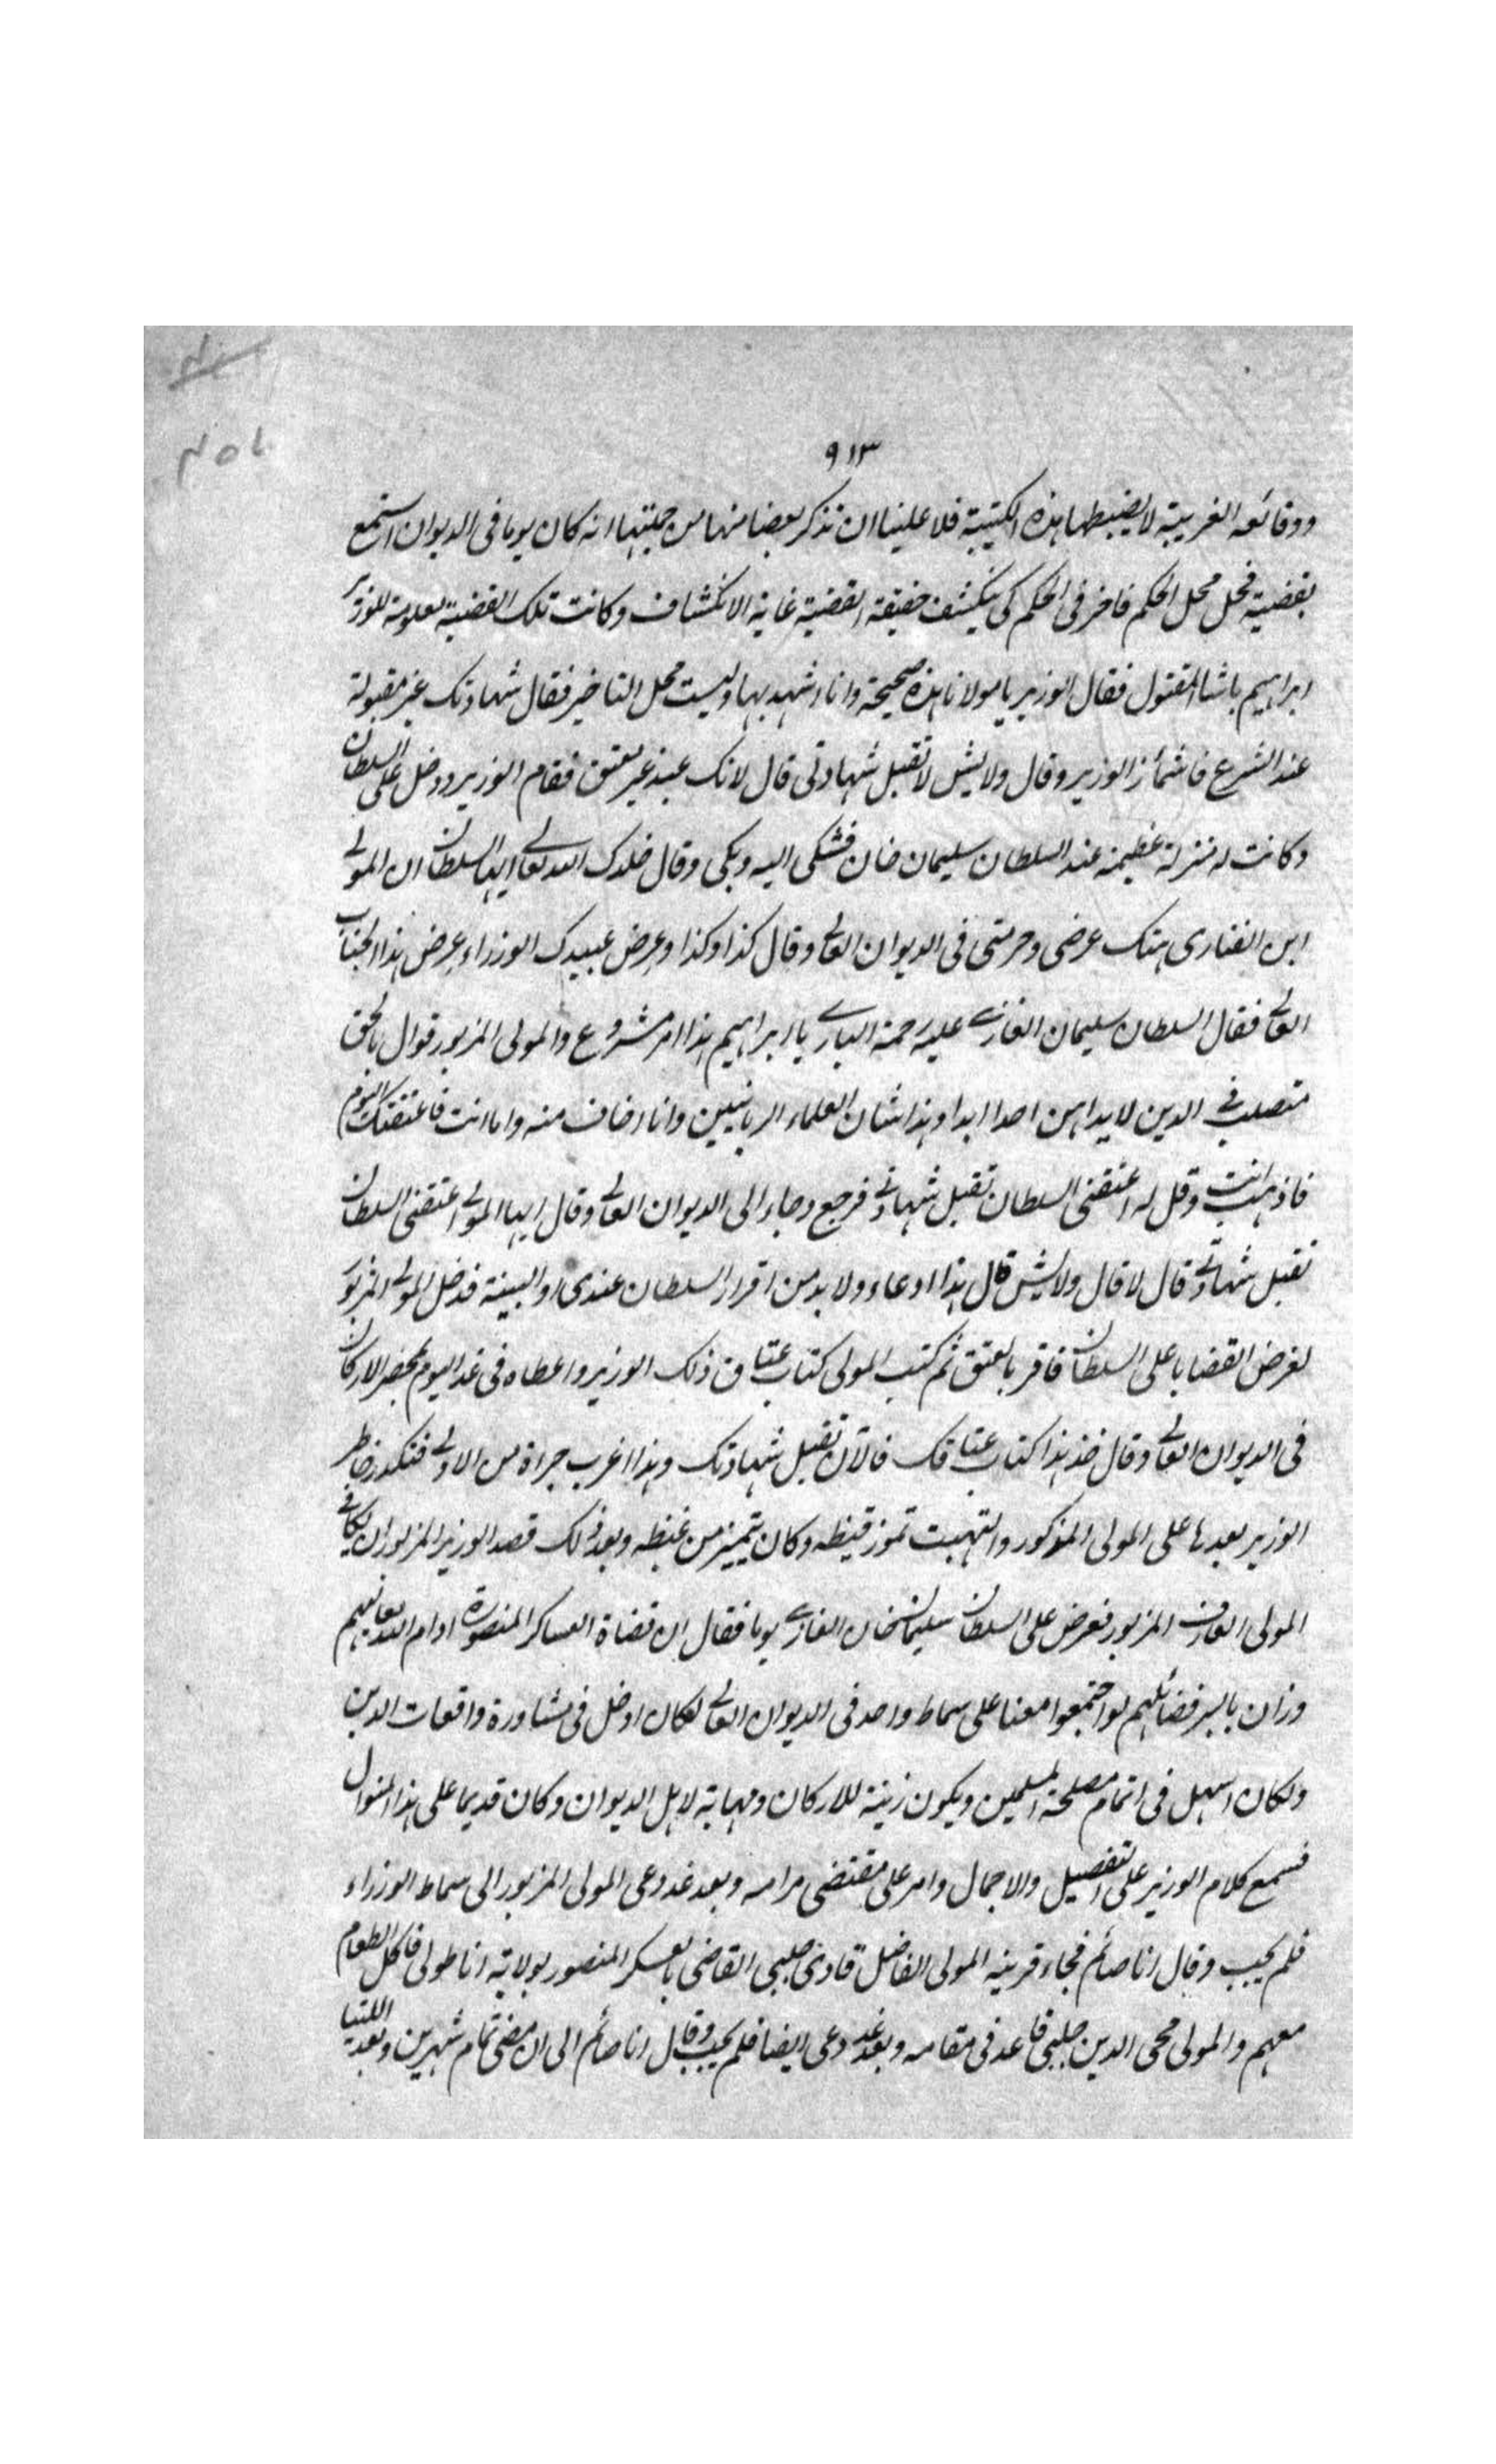 ٩١٣
ووقائعه الغريبة لا يضبطها هذه الكتيبة فلا علينا ان نذكر بعضا منها من جملتها انه كان يوما فى الديوان استمع
بقضية فحل محل الحكم فاخر فى الحكم كى ينكشف حقيقة القضية غاية الانكشاف وكانت تلك القضية معلومة للوزير
ابراهيم باشا المقتول فقال الوزير يا مولانا هذه صحيحة وانا اشهد بها وليست محل التاخير فقال شهادتك غير مقبولة
عند الشرع فاشمأز الوزير وقال ولايش لا تقبل شهادتى قال لانك عبد غير معتق فقام الوزير ودخل على السلطان
وكانت له منزلة عظيمة عند السلطان سليمان خان فشكى اليه وبكى وقال خلدك الله تعالى ايها السلطان ان المولى
ابن الفنارى هتك عرضى وحرمتى فى الديوان العالى وقال كذا وكذا وعرض عبيدك الوزراء عرض هذا الجناب
العالى فقال السلطان سليمان الغازى عليه رحمة البارى يا ابراهيم هذا امر مشروع والمولى المزبور قوال بالحق
متصلب فى الدين لا يداهن احدا ابدا وهذا شان العلماء الربانيين وانا اخاف منه واما انت فاعتقتك اليوم
فاذهب انت وقل له اعتقنى السلطان تقبل شهادتى فرجع وجاء الى الديوان العالى وقال ايها المولى اعتقنى السلطان
تقبل شهادتى قال لا قال ولايش قال هذا ادعاء ولا بد من اقرار السلطان عندى او البينة فدخل المولى المزبور
لعرض القضايا على السلطان فاقر بالعتق ثم كتب المولى كتاب عتاق ذلك الوزير واعطاه فى غد اليوم بمحضر الاركان
فى الديوان العالى وقال خذ هذا كتاب عتاقك فالآن تقبل شهادتك وهذا اغرب جراة من الاولى فتكدر خاطر
الوزير بعدها على المولى المذكور والتهبت تموز قيظه وكان يتميز من غيظه وبعد ذلك قصد الوزير المزبور ان يكافى
المولى العارف المزبور فعرض على السلطان سليمان خان الغازى يوما فقال ان قضاة العساكر المنصورة ادام الله تعالى
وزان باليسر فضائلهم لو اجتمعوا معنا على سماط واحد فى الديوان العالى لكان ادخل فى مشاورة واقعات الدين
ولكان اسهل فى اتمام مصلحة المسلمين ويكون زينة للاركان ومهابة لاهل الديوان وكان قديما على هذا المنوال
فسمع كلام الوزير على التفصيل والاجمال وامر على مقتضى مرامه وبعد غد دعى المولى المزبور الى سماط الوزراء
فلم يجب وقال انا صائم فجاء قرينه المولى الفاضل قادرى چلبى القاضى بالعسكر المنصور بولاية اناطولى فاكل الطعام
معهم والمولى محى الدين چلبى قاعد فى مقامه وبعد غد دعى ايضا فلم يجب وقال انا صائم الى ان مضى تمام شهرين وبعد اللتيا